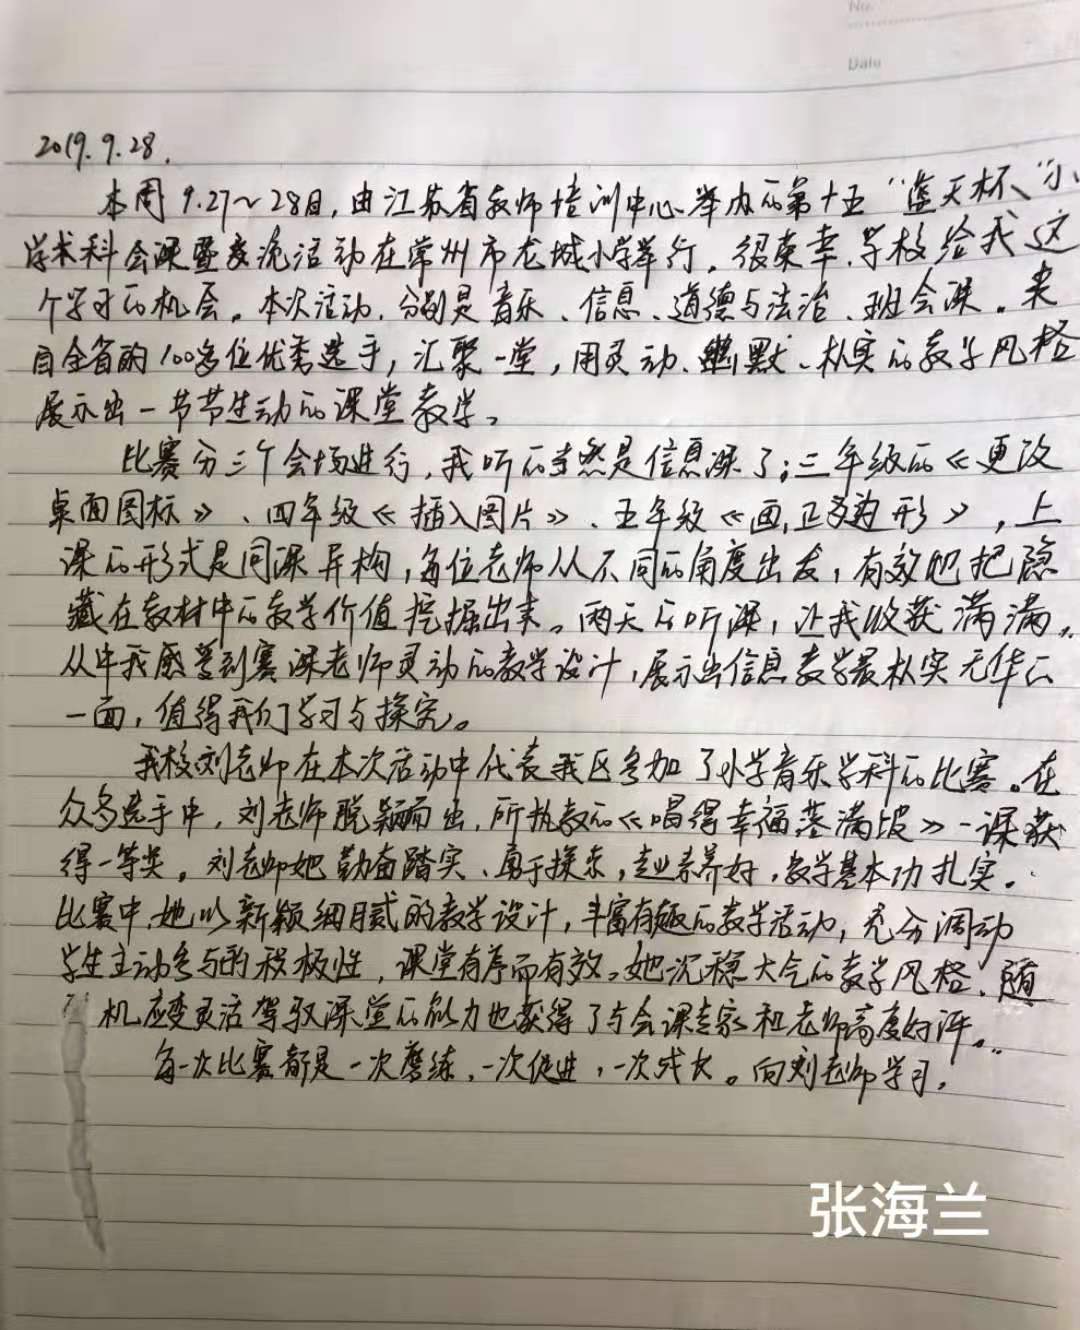 No.
Date
2019.9.28.
本周9.27~28日,由江苏省教师培训中心举办的第十五"蓝天杯、"小
学术科会课暨交流活动在常州市龙城小学举行。很荣幸,学校给我这
个学习的机会。本次活动,分别是音乐、信息、道德与法治、班会课。来
自全省的100多位优秀选手,汇聚一堂,用灵动、幽默、朴实的教学风格
展示出一节节生动的课堂教学。
比赛分三个会场进行,我听的当然是信息课了;三年级的《更改
桌面图标》、四年级《插入图片》、五年级《画正多边形》,上
课的形式是同课异构,每位老师从不同的角度出发,有效地把隐
藏在教材中的教学价值挖掘出来。两天的听课,让我收获满满。
从中我感受到赛课老师灵动的教学设计,展示出信息教学最朴实无华的
一面,值得我们学习与探究。
我校刘老师在本次活动中代表我区参加了小学音乐学科的比赛。在
众多选手中,刘老师脱颖而出,所执教的《唱得幸福落满坡》一课获
得一等奖。刘老师她勤奋踏实、勇于探索,专业素养好,教学基本功扎实。
比赛中,她以新颖细腻的教学设计,丰富有趣的教学活动,充分调动
学生主动参与的积极性,课堂有序而有效。她沉稳大气的教学风格、随
机应变灵活驾驭课堂的能力也获得了与会课专家和老师高度好评。
每一次比赛都是一次磨练,一次促进,一次成长。向刘老师学习。
张海兰